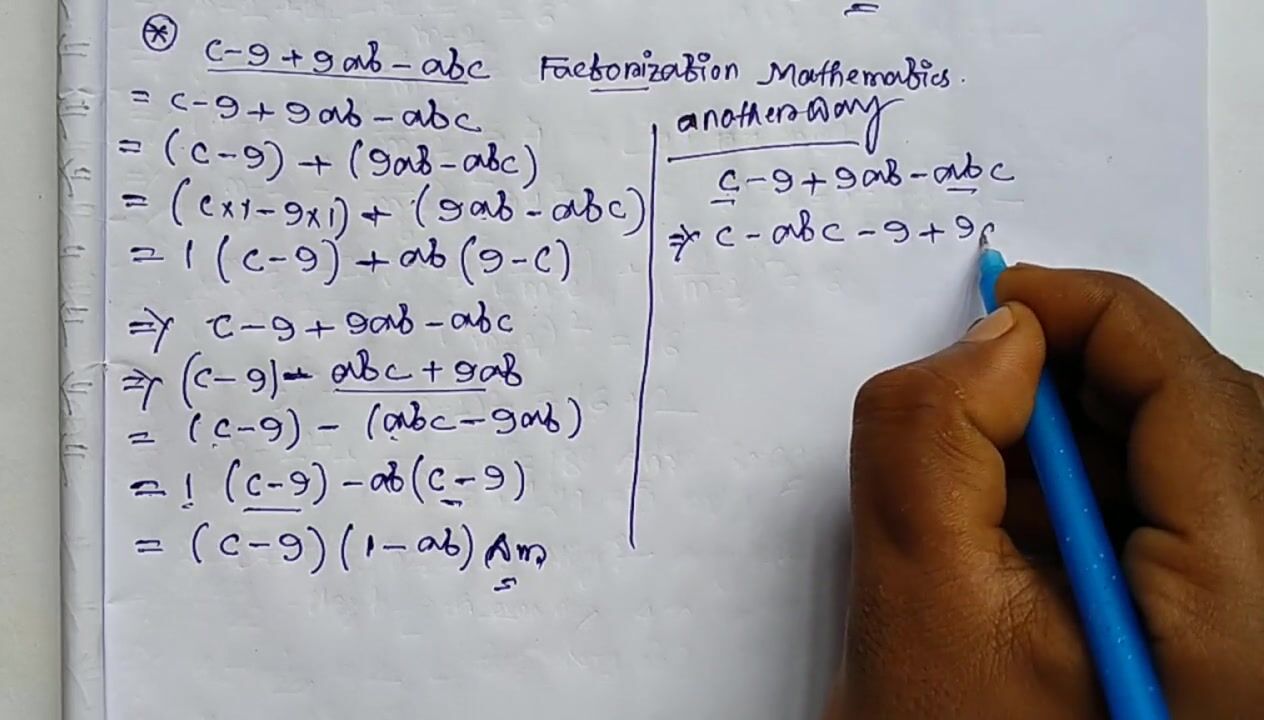 c-9+9ab-abc Factorization Mathematics.
= c-9+9ab-abc
= (c-9) + (9ab-abc)
= (c×1-9×1) + (9ab-abc)
= 1(c-9) + ab(9-c)
⇒ c-9+9ab-abc
⇒ (c-9) - abc+9ab
= (c-9) - (abc-9ab)
= 1(c-9) - ab(c-9)
= (c-9)(1-ab) Ans
another way
c-9+9ab-abc
⇒ c-abc-9+9a